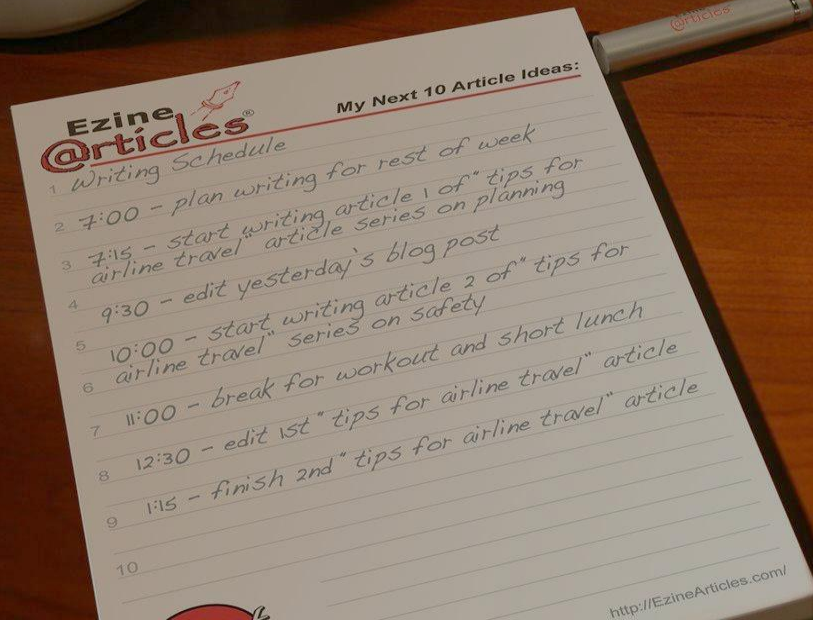 @rticles
Ezine
@rticles®
My Next 10 Article Ideas:
1 Writing Schedule
2 7:00 - plan writing for rest of week
3 7:15 - start writing article 1 of "tips for
airline travel" article series on planning
4 9:30 - edit yesterday's blog post
5 10:00 - start writing article 2 of "tips for
6 airline travel" series on safety
7 11:00 - break for workout and short lunch
8 12:30 - edit 1st "tips for airline travel" article
9 1:15 - finish 2nd "tips for airline travel" article
10
http://EzineArticles.com/